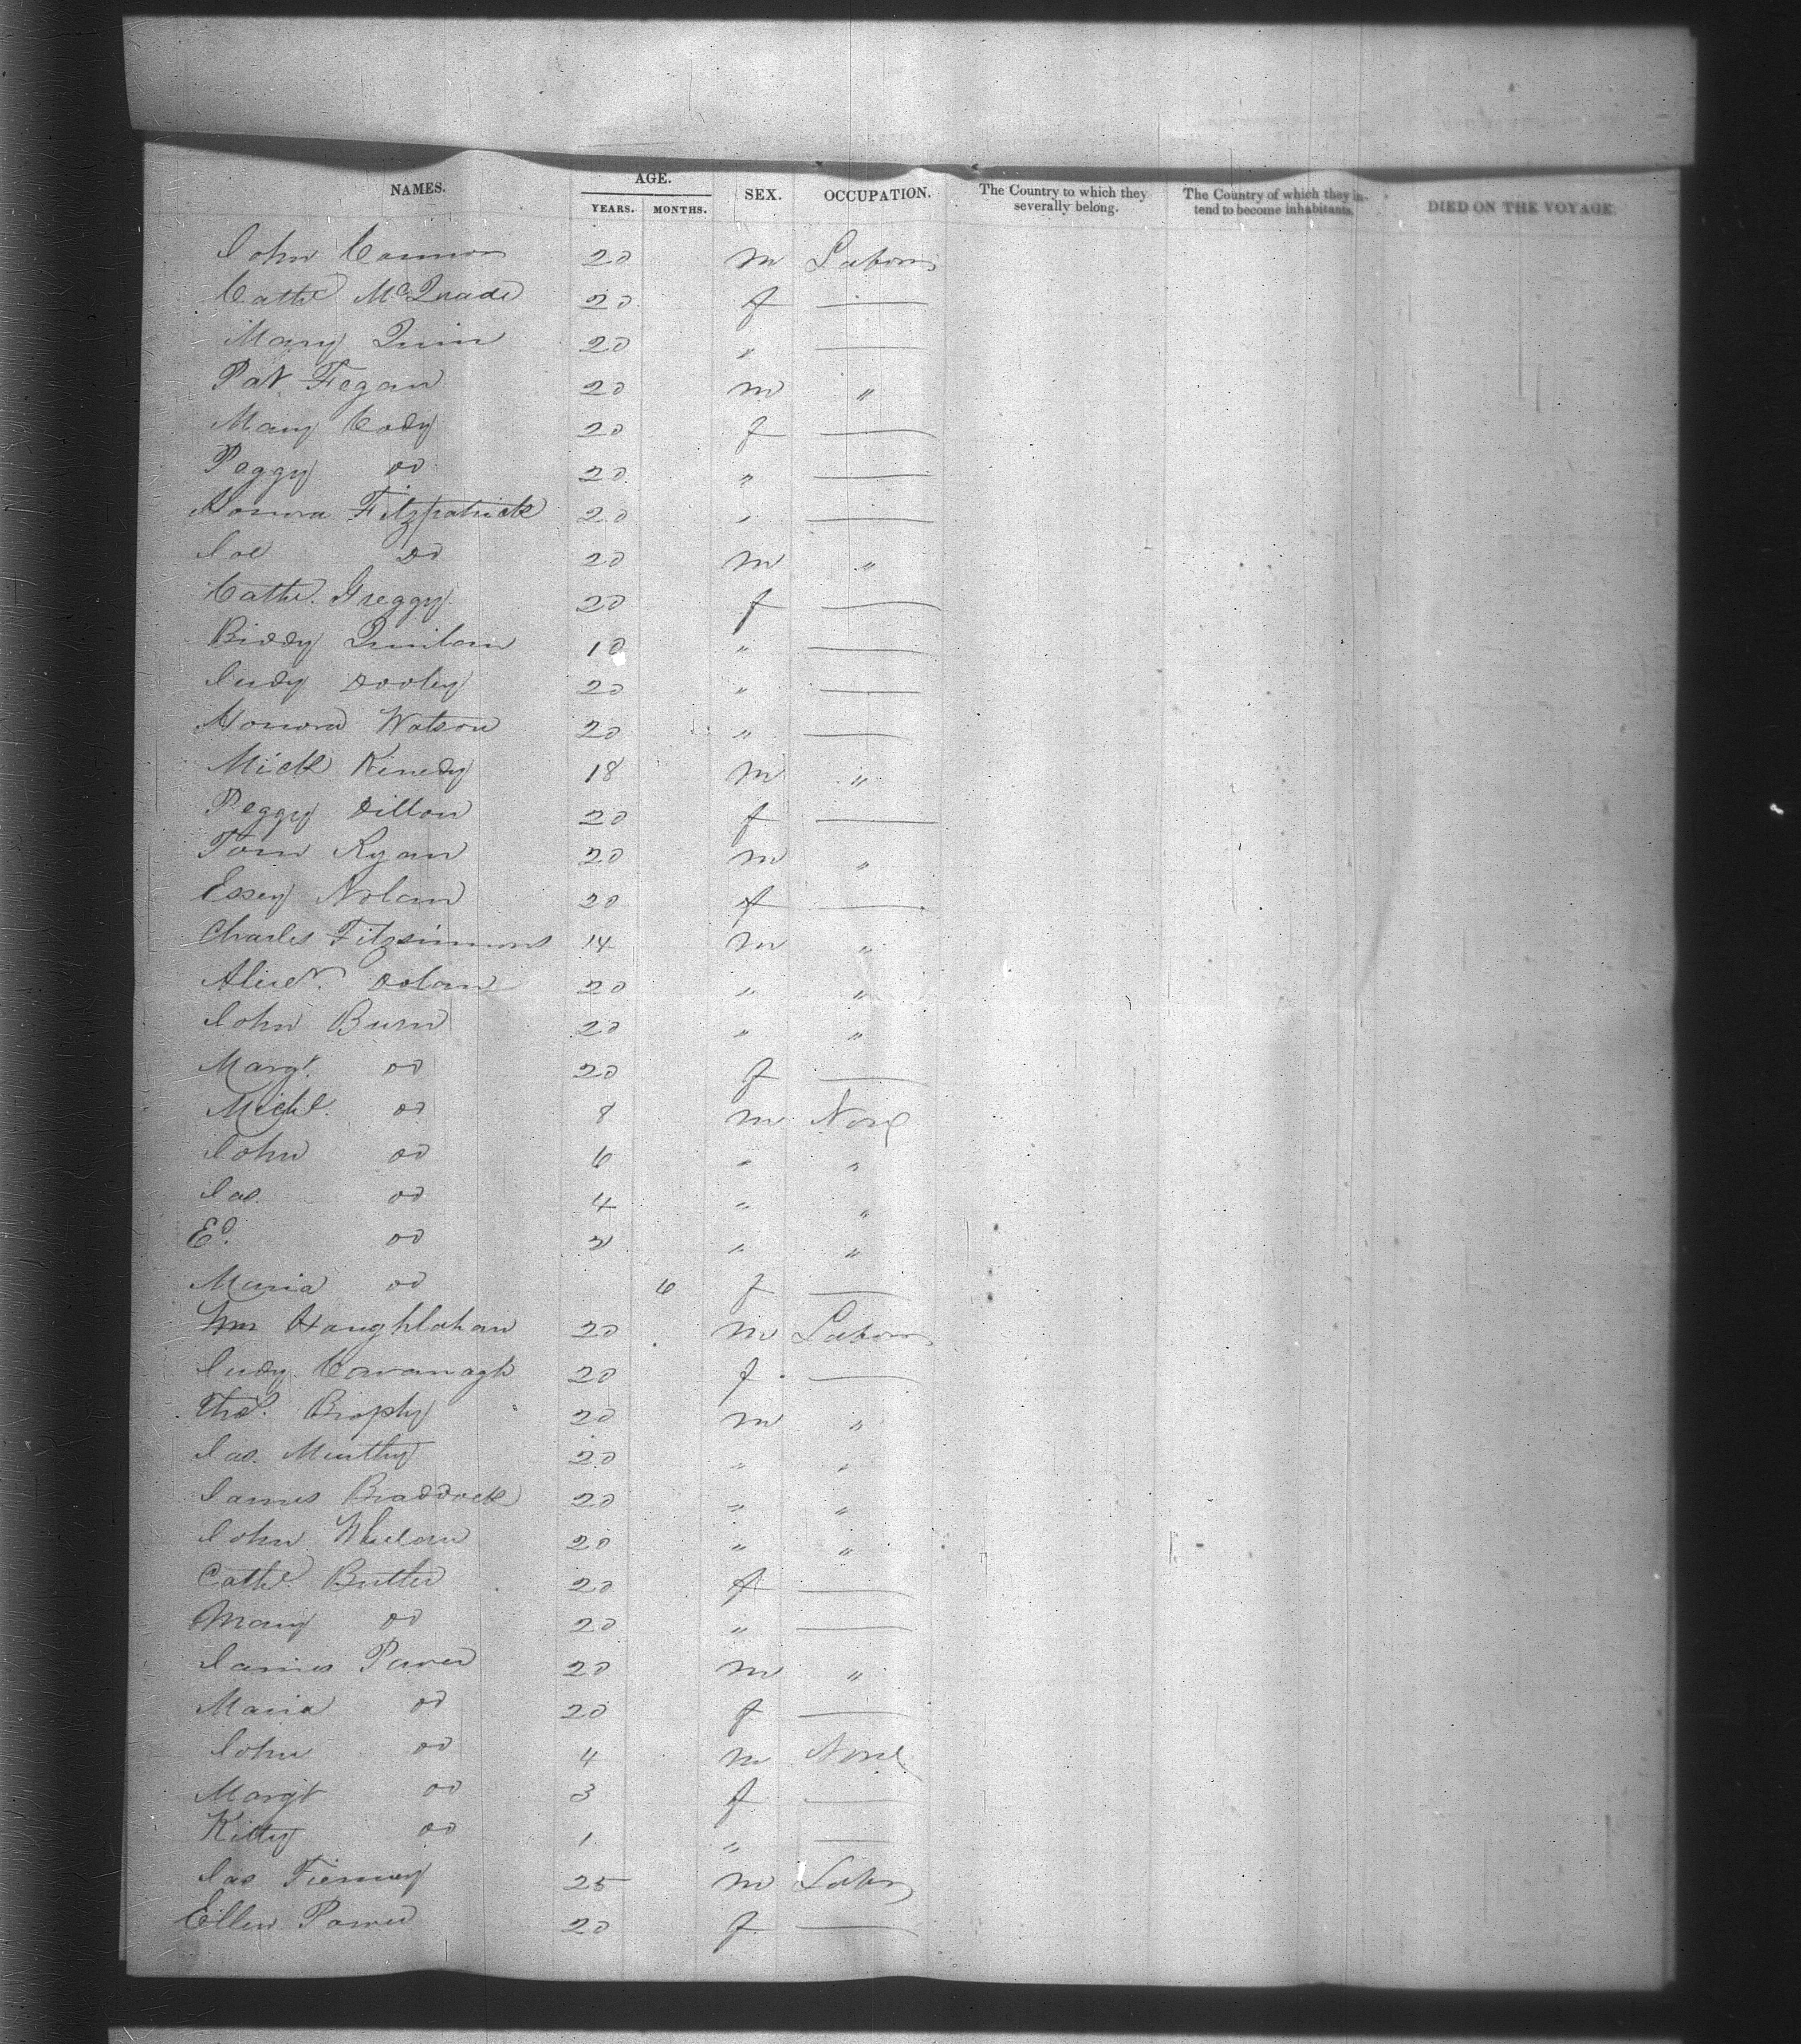 NAMES. AGE. SEX. OCCUPATION. The Country to which they severally belong. The Country of which they intend to become inhabitants. DIED ON THE VOYAGE.
YEARS. MONTHS.
John Cannon 20 m Labor
Cathe McQuade 20 f —
Mary Quin 20 " —
Pat Fegan 20 m "
Mary Cody 20 f —
Peggy do 20 " —
Honora Fitzpatrick 20 " —
Jas do 20 m "
Cathe. Greggy 20 f —
Biddy Quinlan 10 " —
Judy Dooley 20 " —
Honora Watson 20 " —
Mick Kinedy 18 m "
Peggy Dillon 20 f —
Tom Ryan 20 m "
Essey Nolan 20 f —
Charles Fitzsimmons 14 m "
Dolan 20 " "
John Burn 20 " "
Margt. do 20 f —
Michl. do 8 m None
John do 6 " "
Jas. do 4 " "
Ed. do 2 " "
Maria do 6 f —
Wm Haughlahan 20 m Labor
Judy Cavanagh 20 f —
Thos. Brophy 20 m "
Jas. 20 " "
James Braddock 20 " "
John Whelan 20 " "
Cathe. Butler 20 f —
Mary do 20 " —
James Power 20 m "
Maria do 20 f —
John do 4 m None
Margt do 3 f —
Kitty do 1 " —
Jas Tierney 25 m Labr
Ellen Power 20 f —